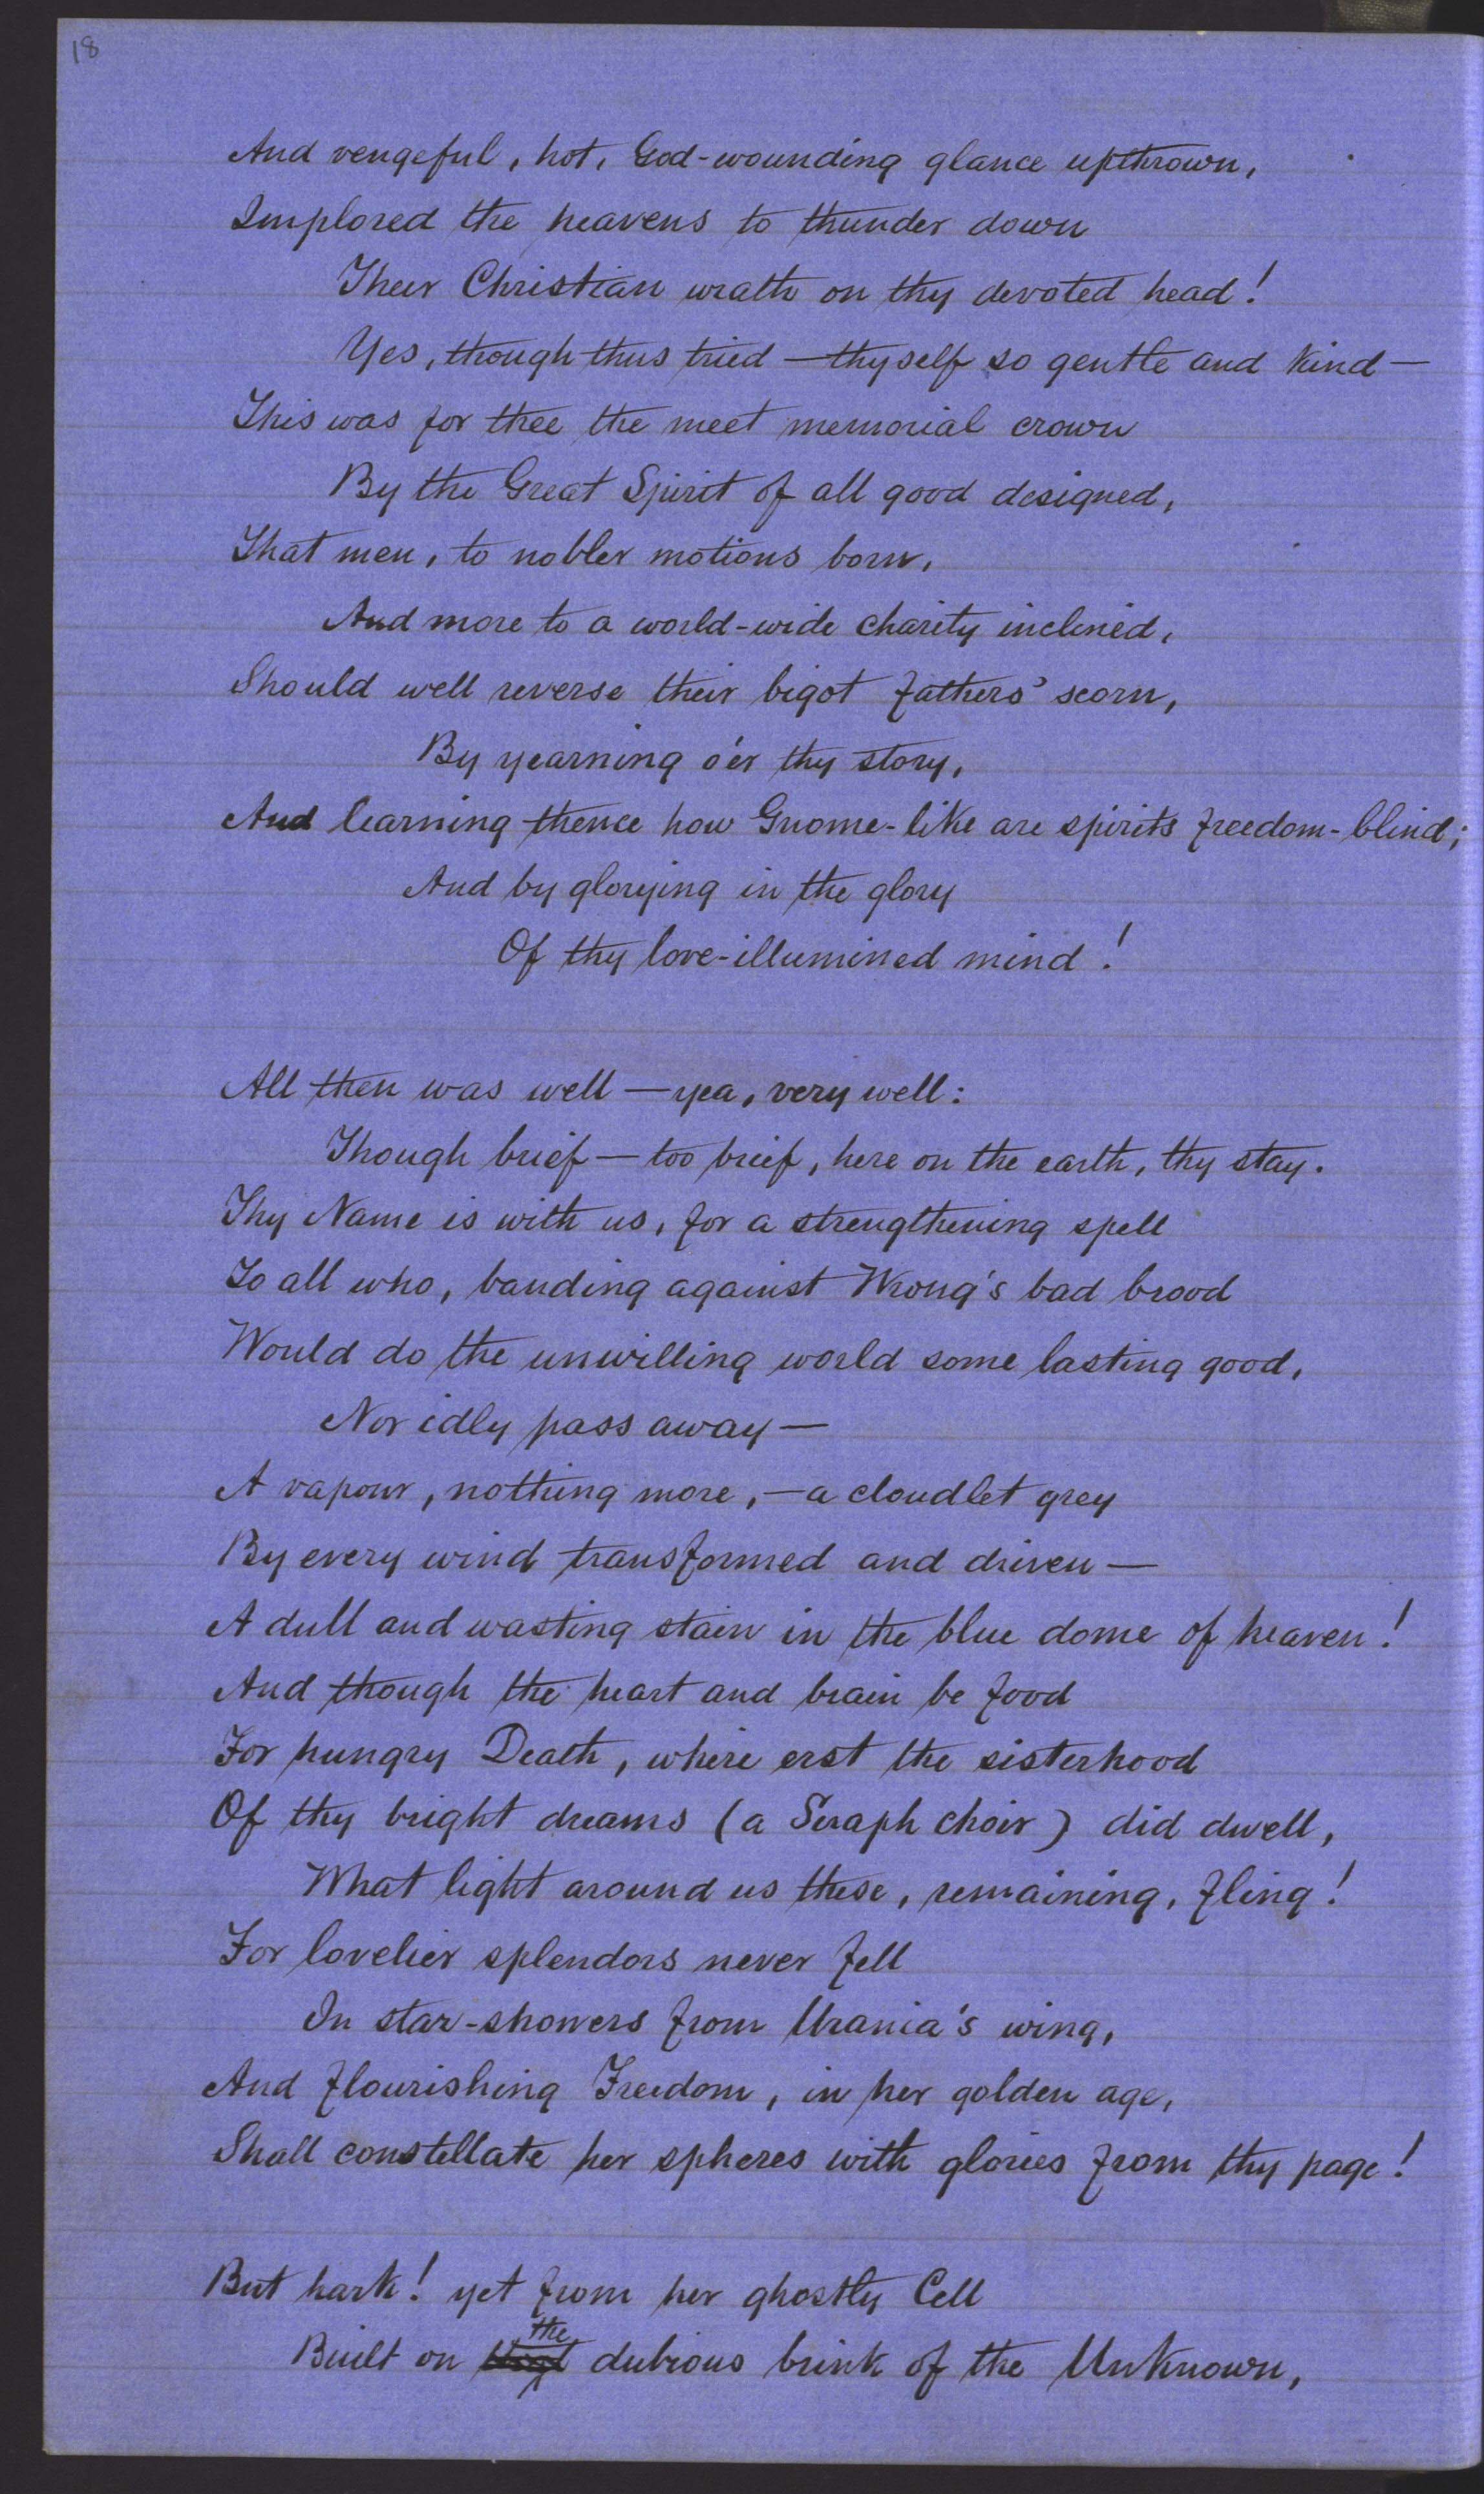 18
And vengeful, hot, God-wounding glance upthrown,
Implored the heavens to thunder down
Their Christian wrath on thy devoted head!
Yes, though thus tried — thyself so gentle and kind —
This was for thee the meet memorial crown
By the Great Spirit of all good designed,
That men, to nobler motions born,
And more to a world-wide charity inclined,
Should well reverse their bigot fathers' scorn,
By yearning o'er thy story,
And learning thence how Gnome-like are spirits freedom-blind;
And by glorying in the glory
Of thy love-illumined mind!
All then was well — yea, very well:
Though brief — too brief, here on the earth, thy stay.
Thy Name is with us, for a strengthening spell
To all who, banding against Wrong's bad brood
Would do the unwilling world some lasting good,
Nor idly pass away —
A vapour, nothing more, — a cloudlet grey
By every wind transformed and driven —
A dull and wasting stain in the blue dome of heaven!
And though the heart and brain be food
For hungry Death, where erst the sisterhood
Of thy bright dreams (a Seraph choir) did dwell,
What light around us these, remaining, fling!
For lovelier splendors never fell
In star-showers from Urania's wing,
And flourishing Freedom, in her golden age,
Shall constellate her spheres with glories from thy page!
But hark! yet from her ghostly Cell
Built on the dubious brink of the Unknown,